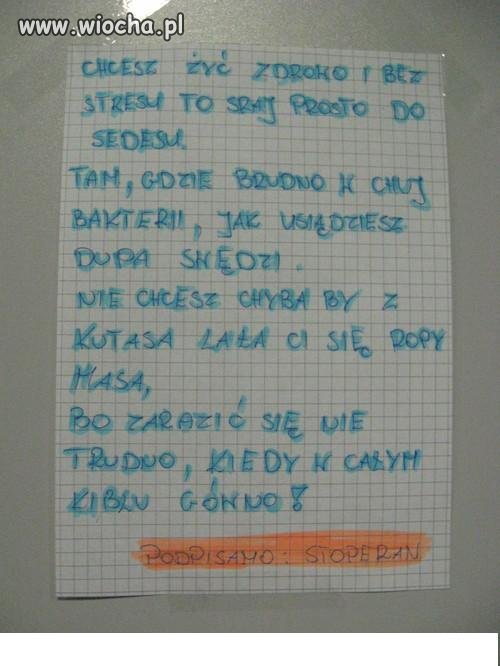 www.wiocha.pl
CHCESZ ŻYĆ ZDROWO I BEZ
STRESU TO SRAJ PROSTO DO
SEDESU.
TAM, GDZIE BRUDNO W CHUJ
BAKTERII, JAK USIĄDZIESZ
DUPA SWĘDZI.
NIE CHCESZ CHYBA BY Z
KUTASA LAŁA CI SIĘ ROPY
MASA,
BO ZARAZIĆ SIĘ NIE
TRUDNO, KIEDY W CAŁYM
KIBLU GÓWNO!
PODPISANO: STOPERAN